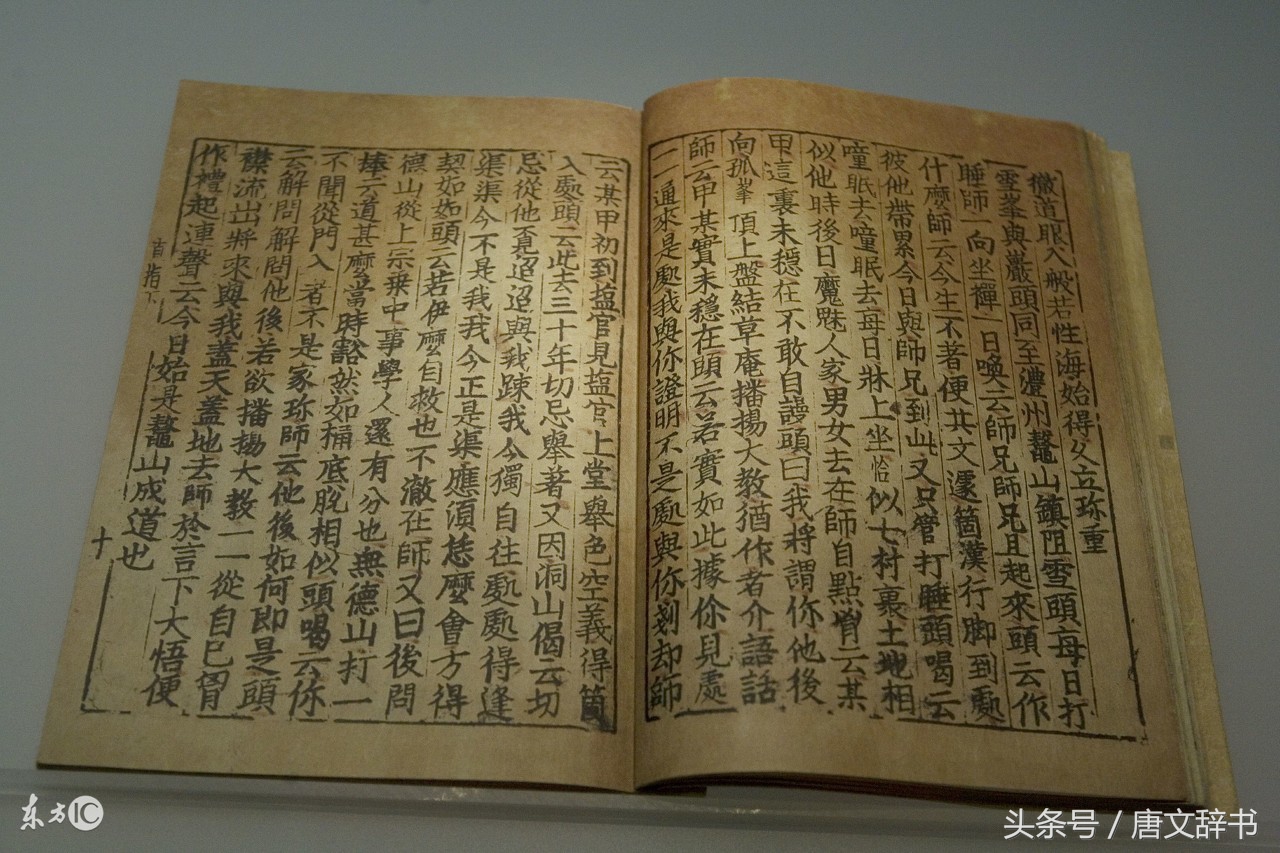 撤道眼入般若性海始得父立珎重
雪峯與巖頭同至澧州鼇山鎮阻雪頭每日打
睡師一向坐禪一日喚云師兄師兄且起來頭云作
什麽師云今生不著便共文邃箇漢行脚到處
彼他帶累今日與師兄到此又只管打睡頭喝云
噇眠去噇眠去每日牀上坐恰似七村裏土地相
似他時後日魔魅人家男女去在師自點胷云某
甲這裏未穩在不敢自謾頭曰我將謂你他後
向孤峯頂上盤結草庵播揚大教猶作者介語話
師云甲某實未穩在頭云若實如此據你見處
一一通來是處我與你證明不是處與你剗却師
云某甲初到塩官見塩官上堂舉色空義得箇
入處頭云此去三十年切忌舉著又因洞山偈云切
忌從他覔迢迢與我踈我今獨自往處處得逢
渠渠今不是我我今正是渠應須恁麽會方得
契如如頭云若伊麽自救也不澈在師又曰後問
德山從上宗乗中事學人還有分也無德山打一
棒云道甚麽當時豁然如桶底脫相似頭喝云你
不聞從門入者不是家珎師云他後如何即是頭
云解問解問他後若欲播揚大教一一從自己胷
襟流出將來與我盖天盖地去師於言下大悟便
作禮起連聲云今日始是鼇山成道也
指下 十
东方IC
头条号 / 唐文辞书